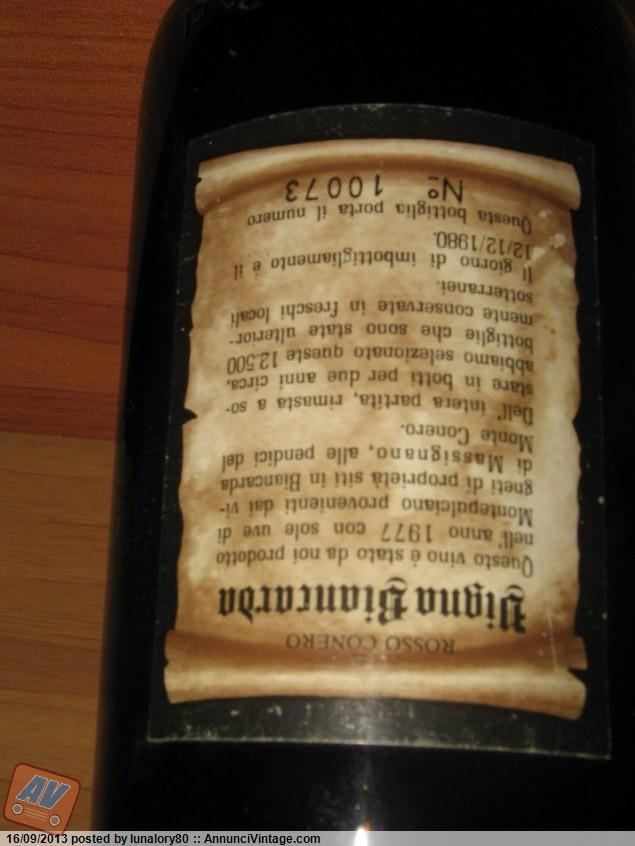 ROSSO CONERO
Vigna Biancarda
Questo vino è stato da noi prodotto
nell'anno 1977 con sole uve di
Montepulciano provenienti dai vi-
gneti di proprietà siti in Biancarda
di Massignano, alle pendici del
Monte Conero.
Dell'intera partita, rimasta a so-
stare in botti per due anni circa,
abbiamo selezionato queste 12.500
bottiglie che sono state ulterior-
mente conservate in freschi locali
sotterranei.
Il giorno di imbottigliamento è il
12/12/1980.
Questa bottiglia porta il numero
Nº 10073
AV
16/09/2013 posted by lunalory80 :: AnnunciVintage.com